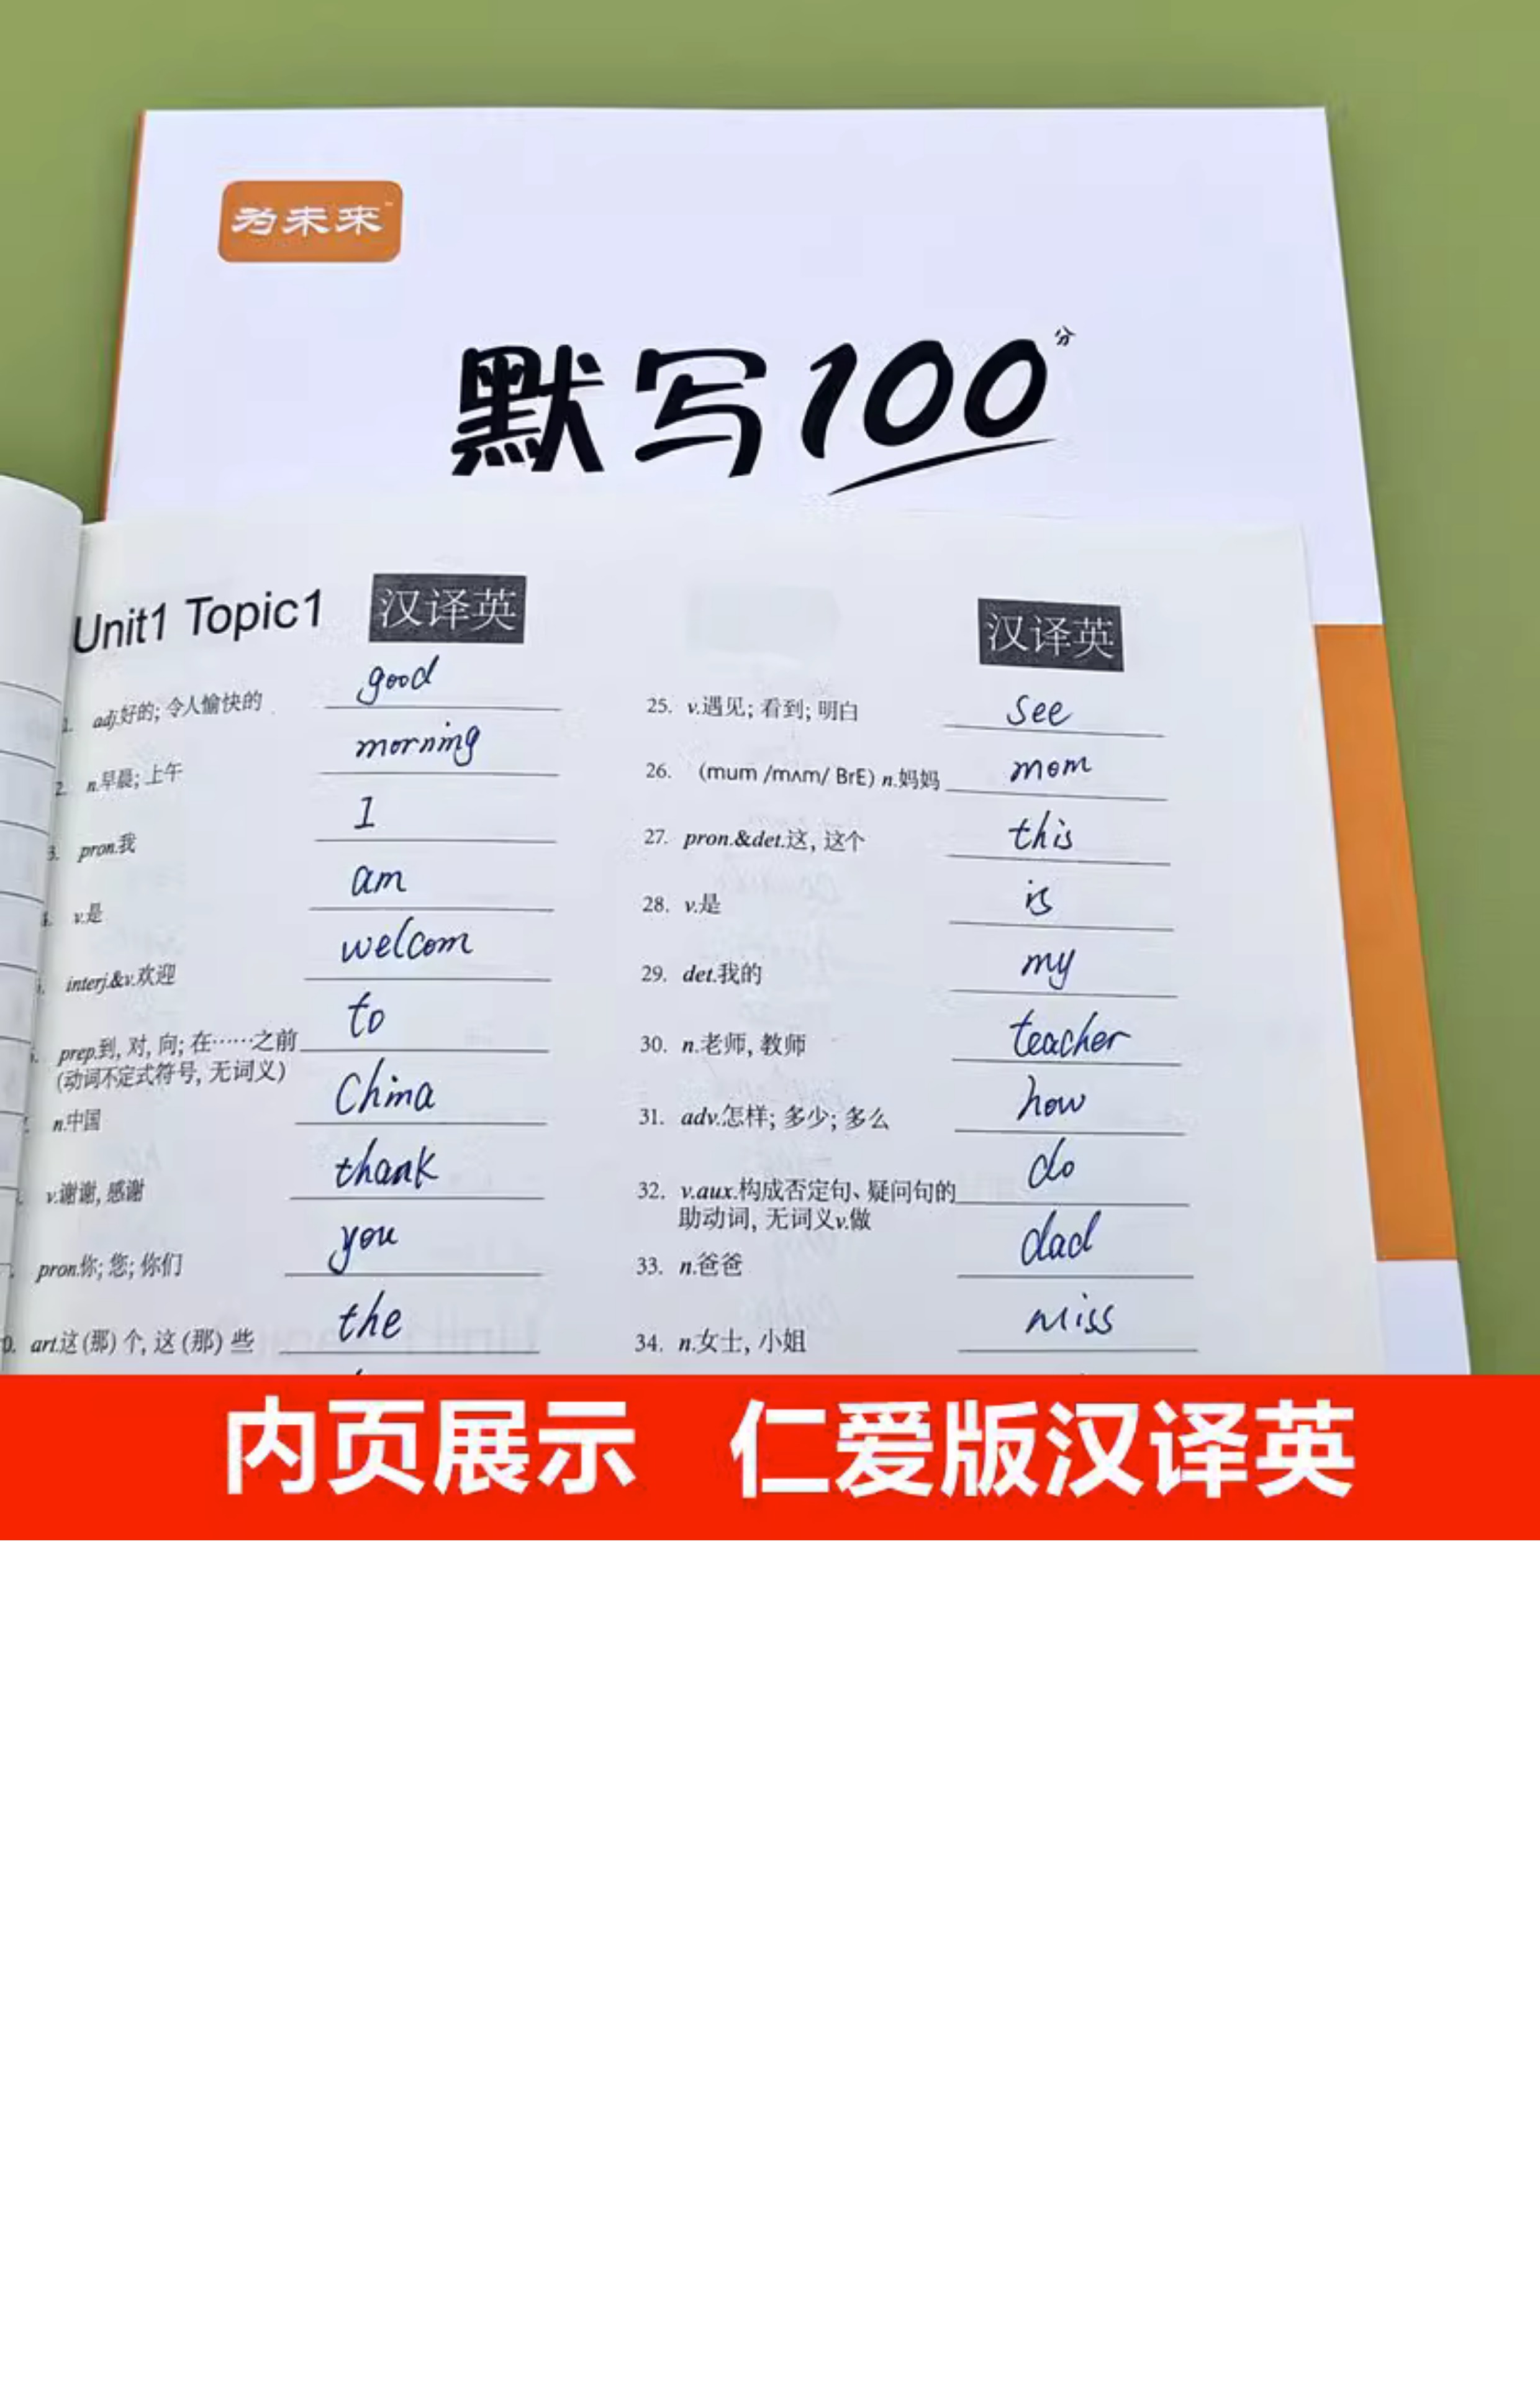 为未来
默写100分
Unit1 Topic1 汉译英
1. adj.好的; 令人愉快的 good
2. n.早晨; 上午 morning
3. pron.我 I
4. v.是 am
5. interj.&v.欢迎 welcom
6. prep.到, 对, 向; 在……之前 to
(动词不定式符号, 无词义)
n.中国 China
v.谢谢, 感谢 thank
pron.你; 您; 你们 you
0. art.这 (那) 个, 这 (那) 些 the
汉译英
25. v.遇见; 看到; 明白 see
26. (mum /mʌm/ BrE) n.妈妈 mom
27. pron.&det.这, 这个 this
28. v.是 is
29. det.我的 my
30. n.老师, 教师 teacher
31. adv.怎样; 多少; 多么 how
32. v.aux.构成否定句、疑问句的 do
助动词, 无词义v.做
33. n.爸爸 dad
34. n.女士, 小姐 miss
内页展示 仁爱版汉译英